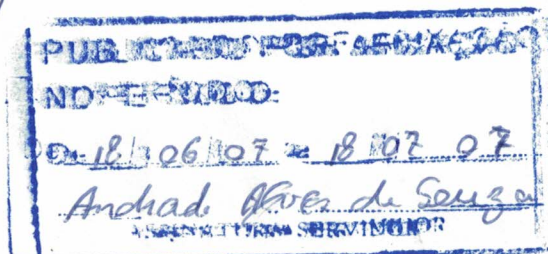 PUBLICADO POR AFIXAÇÃO
NO
De 18/06/07 a 18/07/07
Andrade Alves de Souza
ASSINATURA SERVIDOR